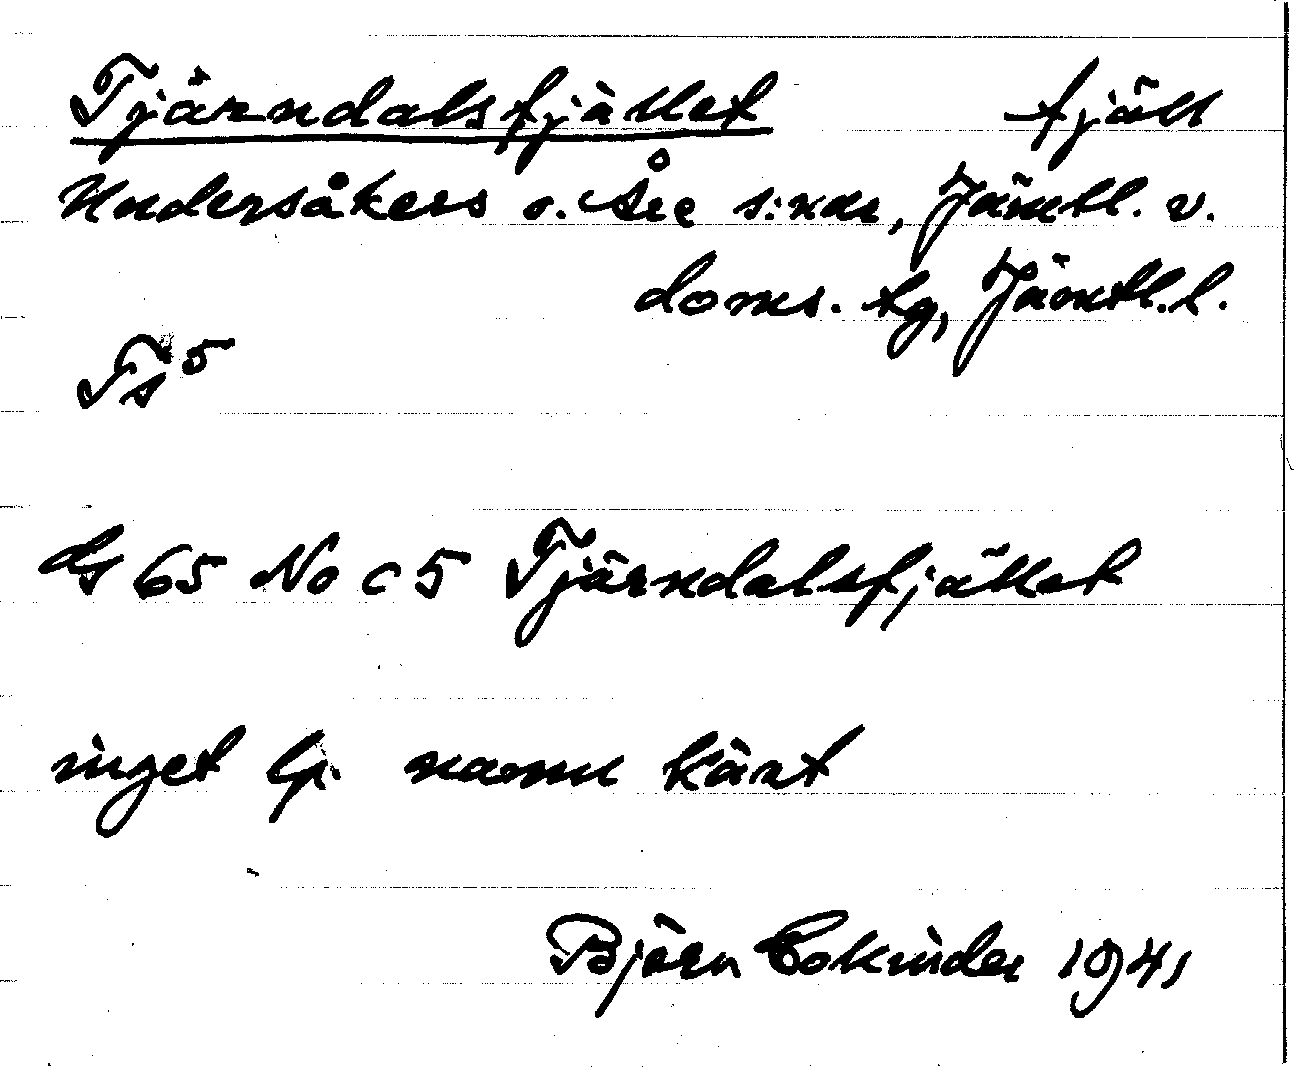 Tjärndalsfjället fjäll
Undersåkers o. Åre s:nar, Jämtl. v.
doms. tg, Jämtl. l.
Ts 5
ds 65 No C 5 Tjärndalsfjället
inget lp. namn känt
Björn Collinder 1941